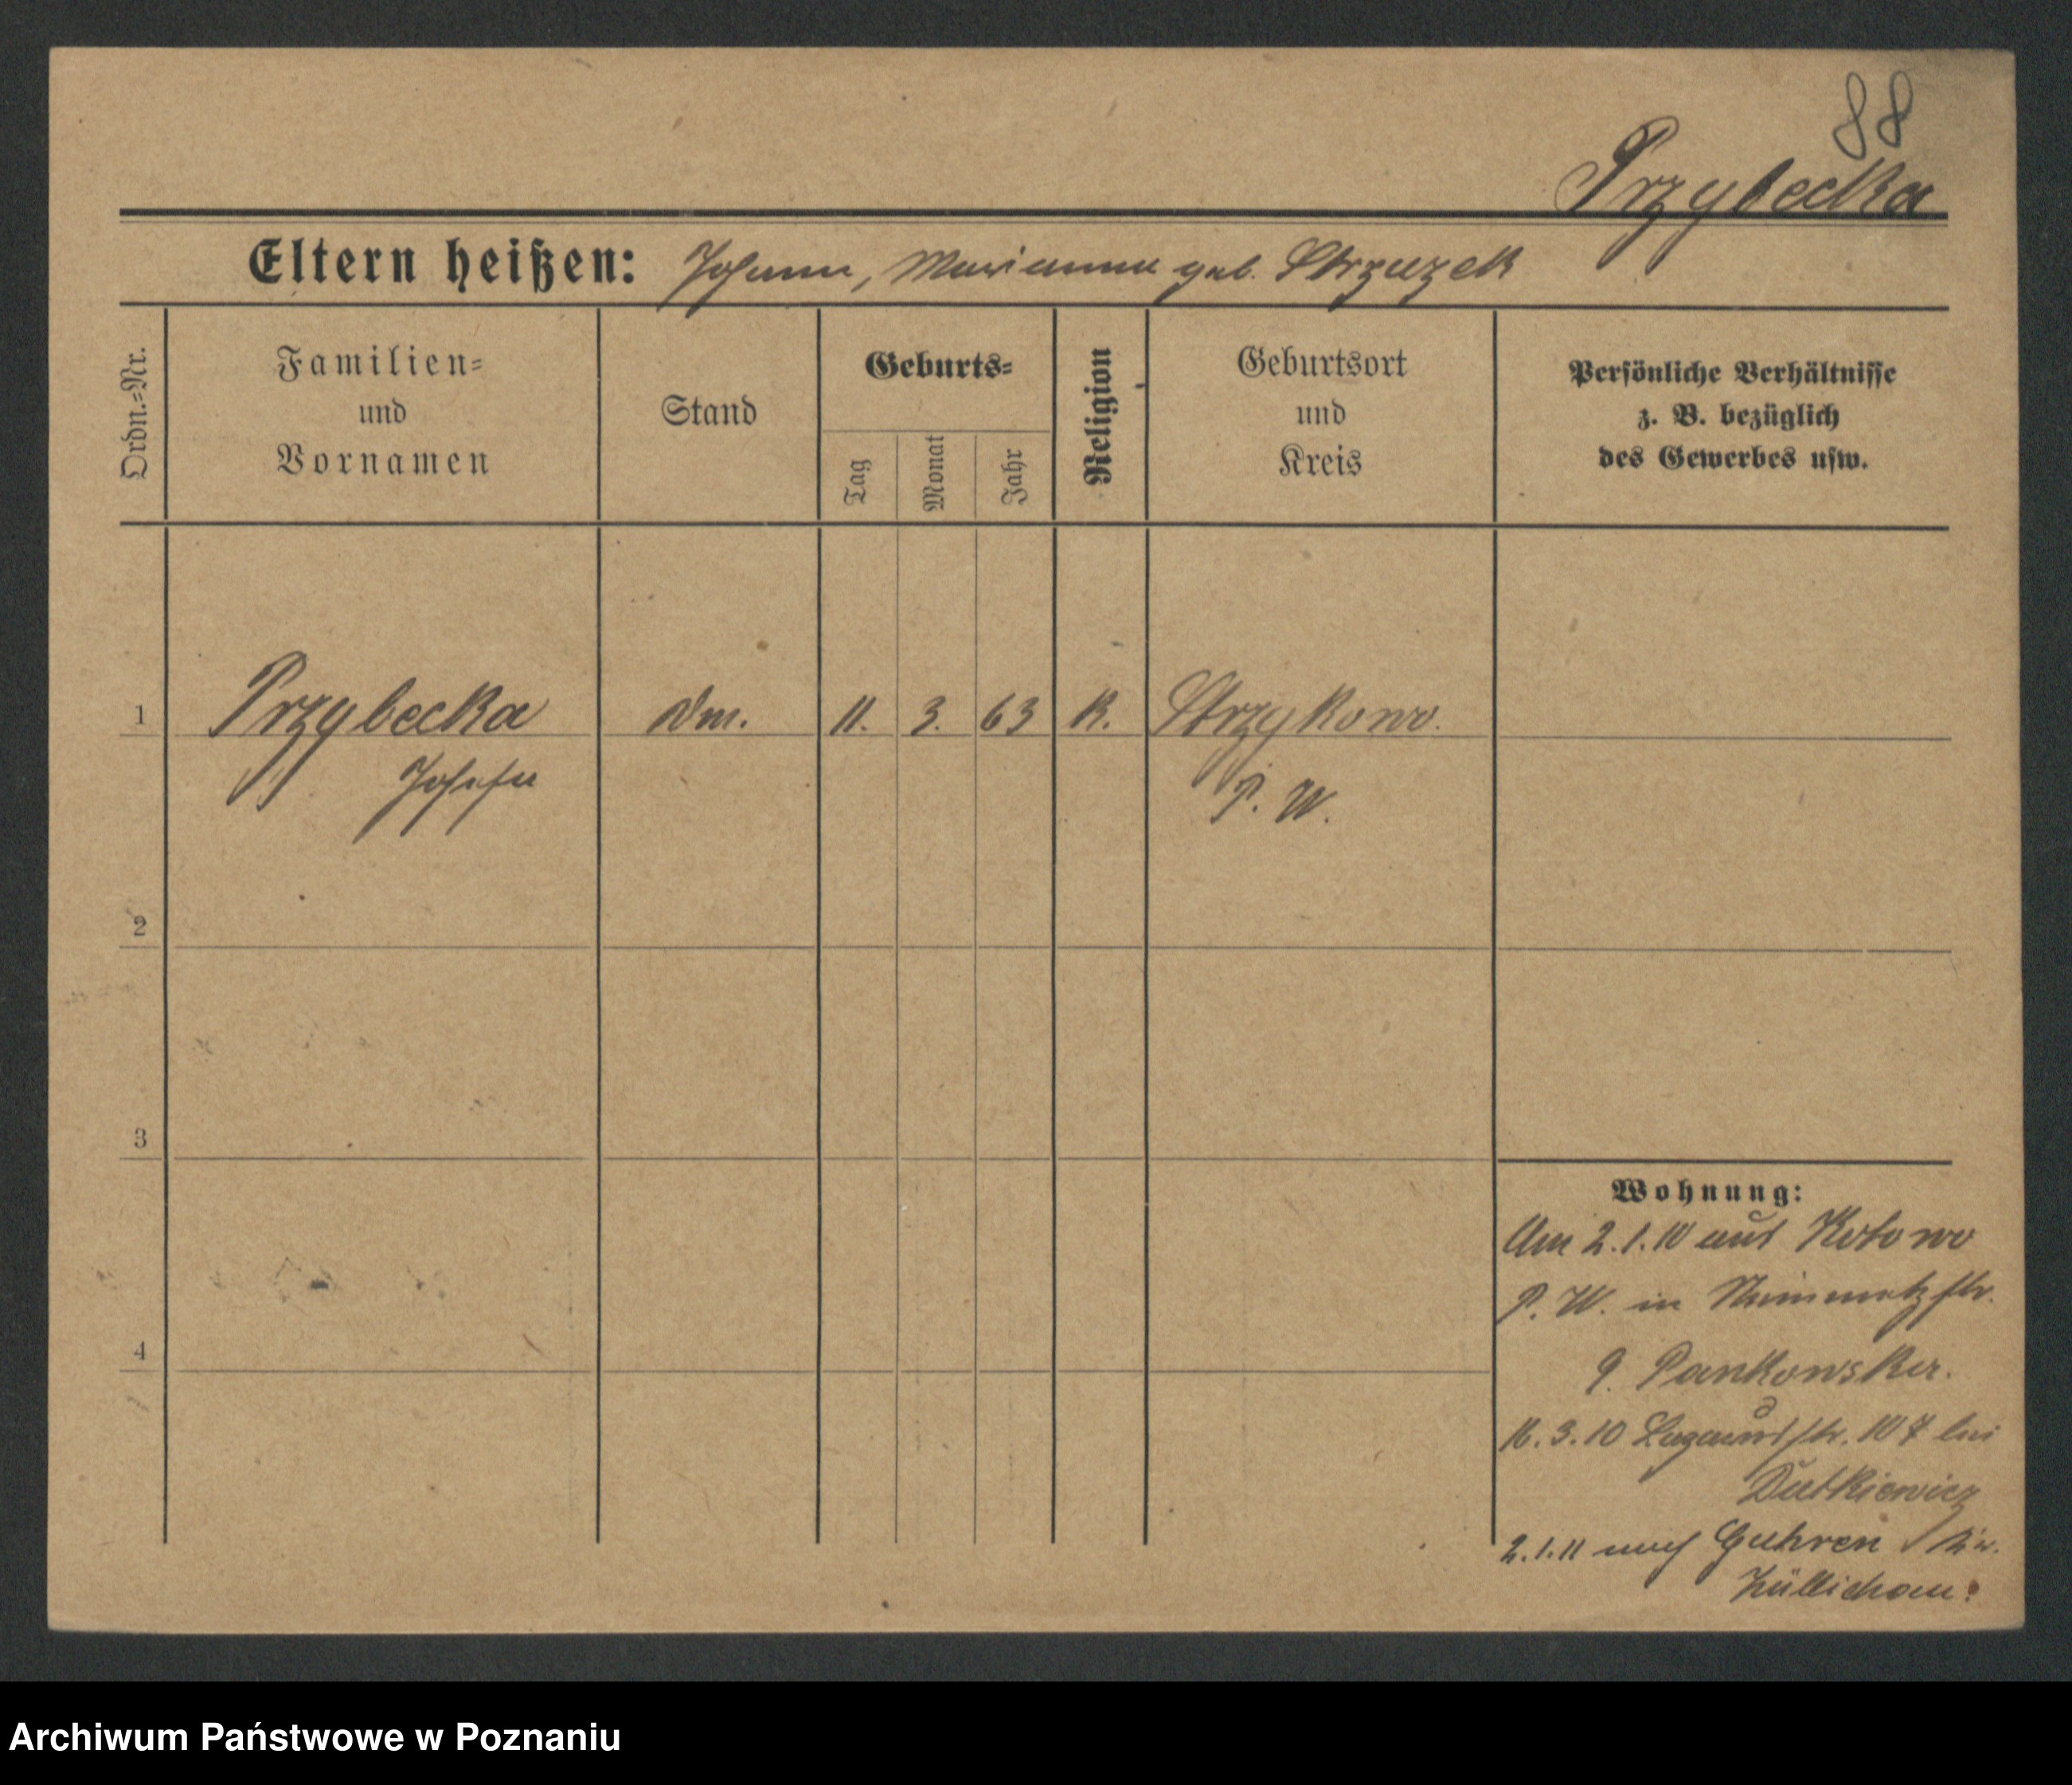 88
Przybecka
Eltern heißen: Johann, Marianna geb. Strzyzek
Ordn.=Nr.
Familien=
und
Vornamen
Stand
Geburts=
Tag
Monat
Jahr
Religion
Geburtsort
und
Kreis
Persönliche Verhältnisse
z. B. bezüglich
des Gewerbes usw.
1 Przybecka 11. 3. 63 K. Strzykowo.
Josefa P. W.
2
3
4
Wohnung:
Am 2.1.10 aus Kotowo
P. W. in
9. Pankowsker.
10 107 bei
Dutkiewicz
2.1.11 nach Guhren Kr.
Züllichau.
Archiwum Państwowe w Poznaniu